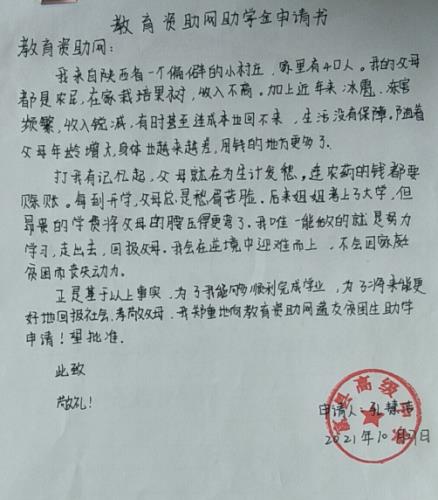 教育资助网助学金申请书
教育资助网：
我来自陕西省一个偏僻的小村庄，家里有4口人。我的父母
都是农民，在家栽培果树，收入不高。加上近年来冰雹、冻害
频繁，收入锐减，有时甚至连成本也回不来，生活没有保障。随着
父母年龄增大，身体也越来越差，用钱的地方更多了。
打我有记忆起，父母就在为生计发愁，连农药的钱都要
赊账。每到开学，父母总是愁眉苦脸。后来姐姐考上了大学，但
昂贵的学费将父母的腰压得更弯了。我唯一能做的就是努力
学习，走出去，回报父母。我会在逆境中迎难而上，不会因家庭
贫困而丧失动力。
正是基于以上事实，为了我能够顺利完成学业，为了将来能更
好地回报社会，孝敬父母，我郑重地向教育资助网递交贫困生助学
申请！望批准。
此致
敬礼！
县高级中
申请人：
2021年10月